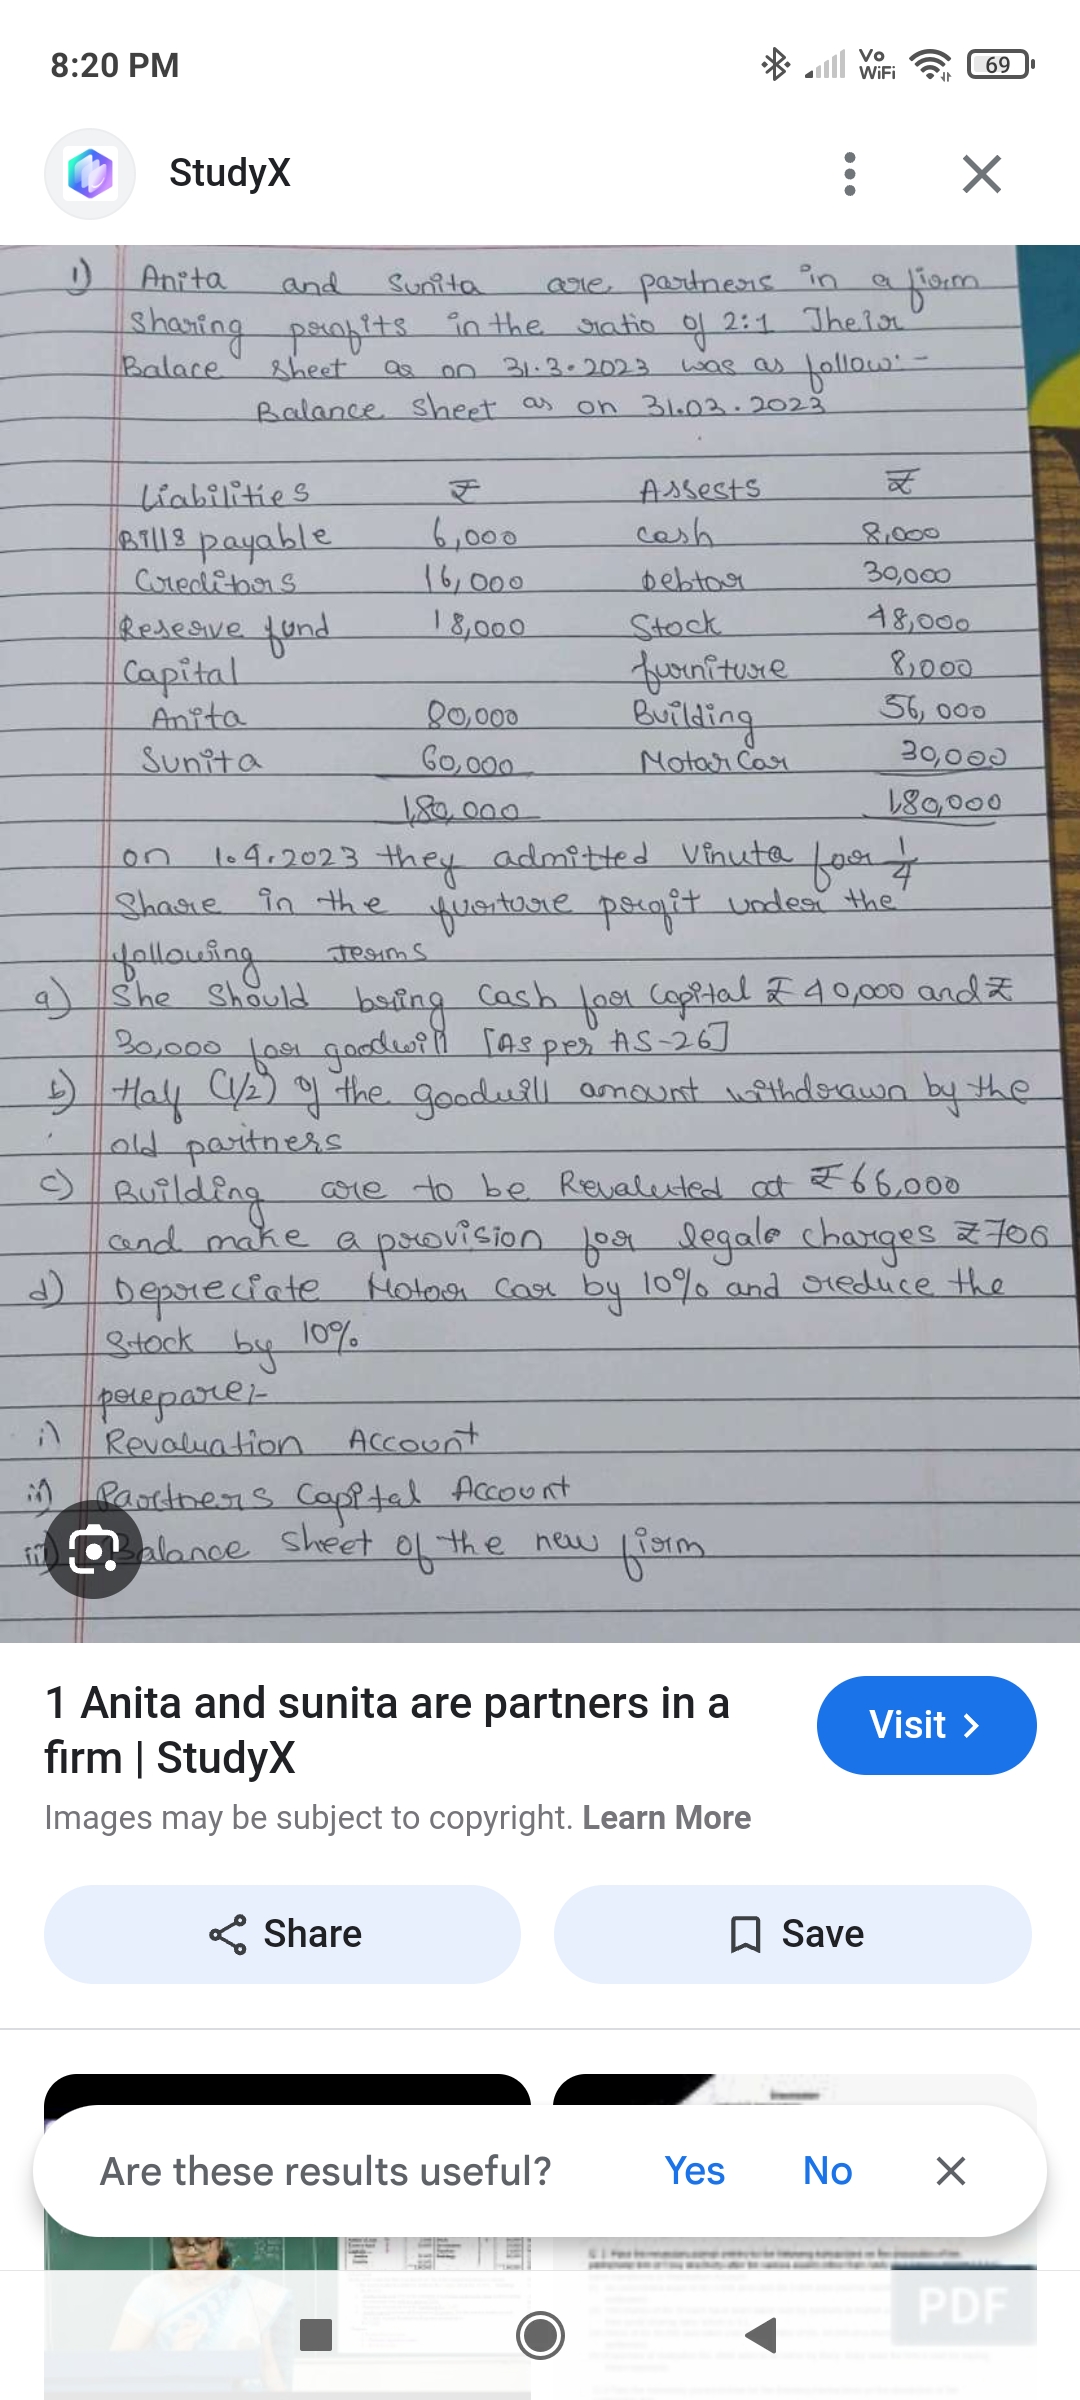 8:20 PM
Vo WiFi
69
StudyX
1) Anita and Sunita are partners in a firm
Sharing profits in the ratio of 2:1 Their
Balace sheet as on 31.3.2023 was as follow:-
Balance Sheet as on 31.03.2023
Liabilities ₹ Assests ₹
Bills payable 6,000 cash 8,000
Creditors 16,000 Debtor 30,000
Reserve fund 18,000 Stock 48,000
Capital furniture 8,000
Anita 80,000 Building 56,000
Sunita 60,000 Motar Car 30,000
1,80,000 1,80,000
on 1.4.2023 they admitted Vinuta for 1/4
Share in the furture profit under the
following terms
a) She Should bring Cash for Capital ₹ 40,000 and ₹
30,000 for goodwill [As per AS-26]
b) Half (1/2) of the goodwill amount withdrawn by the
old partners
c) Building are to be Revaluted at ₹66,000
and make a provision for legale charges ₹700
d) Depreciate Motor Car by 10% and reduce the
Stock by 10%
prepare:-
i) Revaluation Account
ii) Partners Capital Account
iii) Balance Sheet of the new firm
1 Anita and sunita are partners in a
firm | StudyX
Visit
Images may be subject to copyright. Learn More
Share
Save
Are these results useful? Yes No
PDF